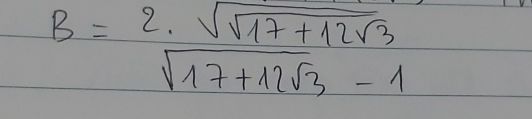 B = 2. √√17+12√3
√17+12√3 - 1